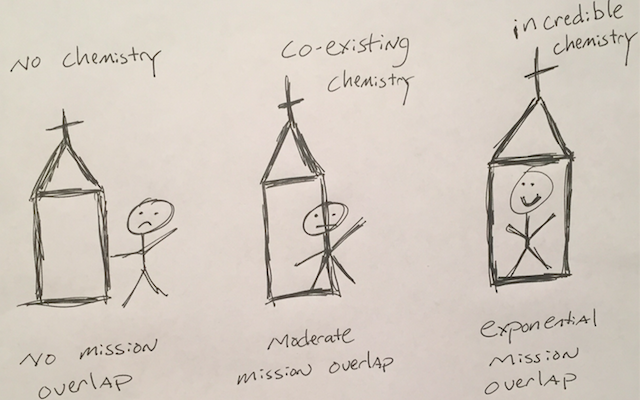 No chemistry
co-existing
chemistry
incredible
chemistry
No mission
overlap
Moderate
mission overlap
exponential
mission
overlap